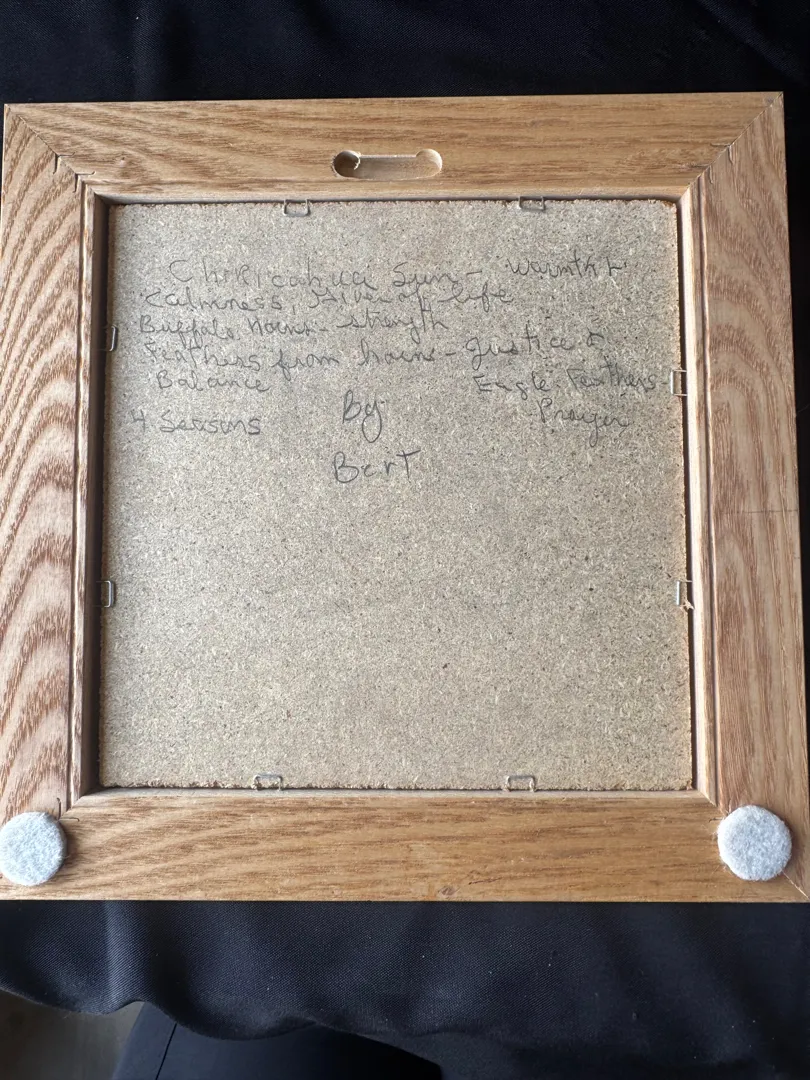 Chiricahua Sun - Warmth &
Calmness, River of life
Buffalo Horns - strength
Feathers from horns - Justice &
Balance
Eagle Feathers -
Prayer
4 Seasons
By
Bert